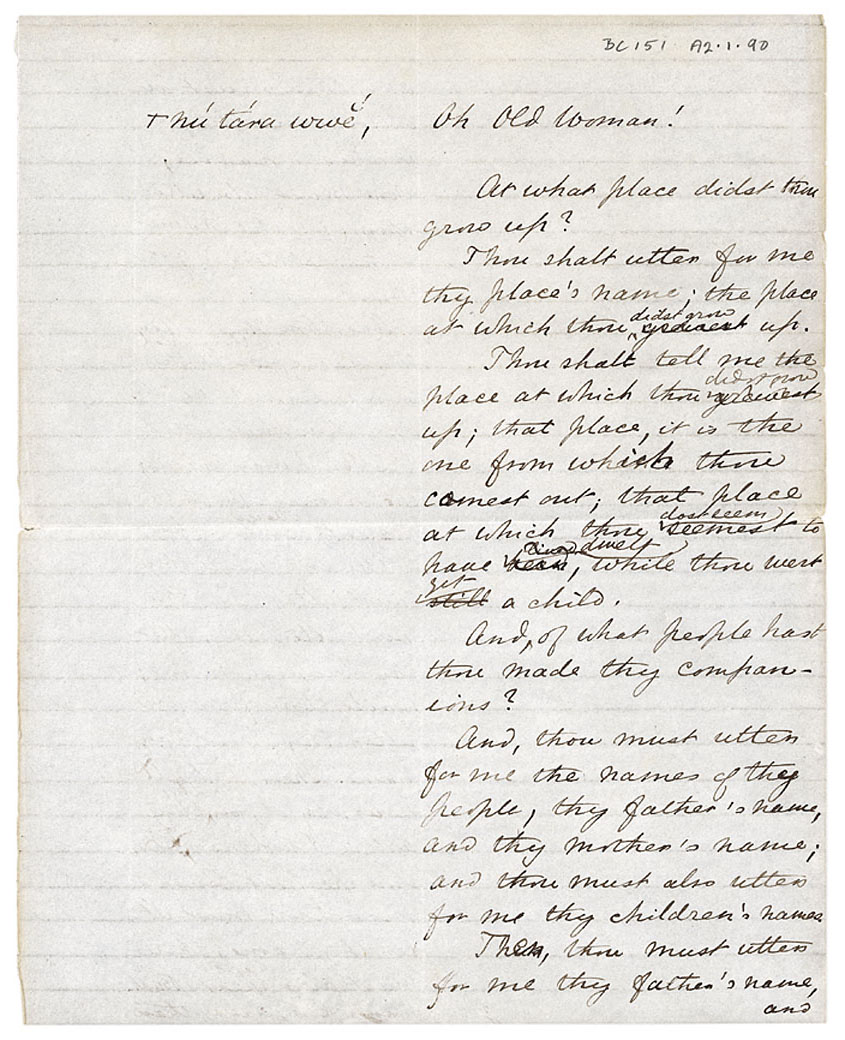 BC151 A2.1.90
+ nú tára wwĕ́, Oh Old Woman!
At what place didst thou
grow up?
Thou shalt utter for me
thy place's name; the place
didst grow
at which thou grewest up.
Thou shalt tell me the
didst grow
place at which thou grewest
up; that place, it is the
one from which thou
comest out; that place
dost seem
at which thou seemest to
dwelt
have been, while thou wert
yet
still a child.
And, of what people hast
thou made thy compan-
ions?
And, thou must utter
for me the names of thy
people, thy father's name,
and thy mother's name;
and thou must also utter
for me thy children's names
Then, thou must utter
for me thy father's name,
and